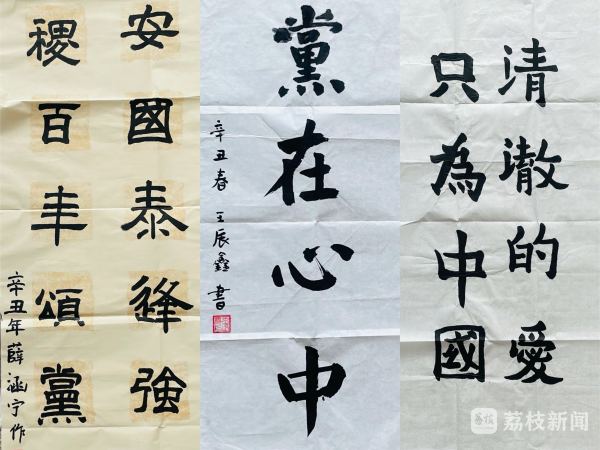 安國泰逢強
稷百年頌黨
辛丑年薛涵宁作
黨在心中
辛丑春 王辰鑫 書
清澈的愛
只為中國
荔枝新闻